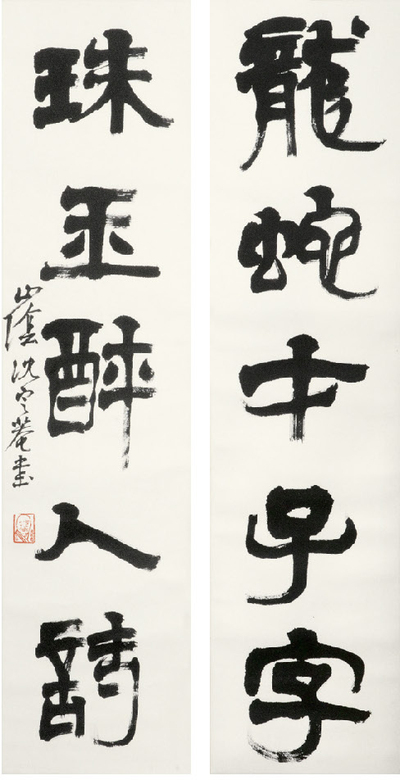 龍蛇才子字
珠玉醉人詩
山陰沈定菴書